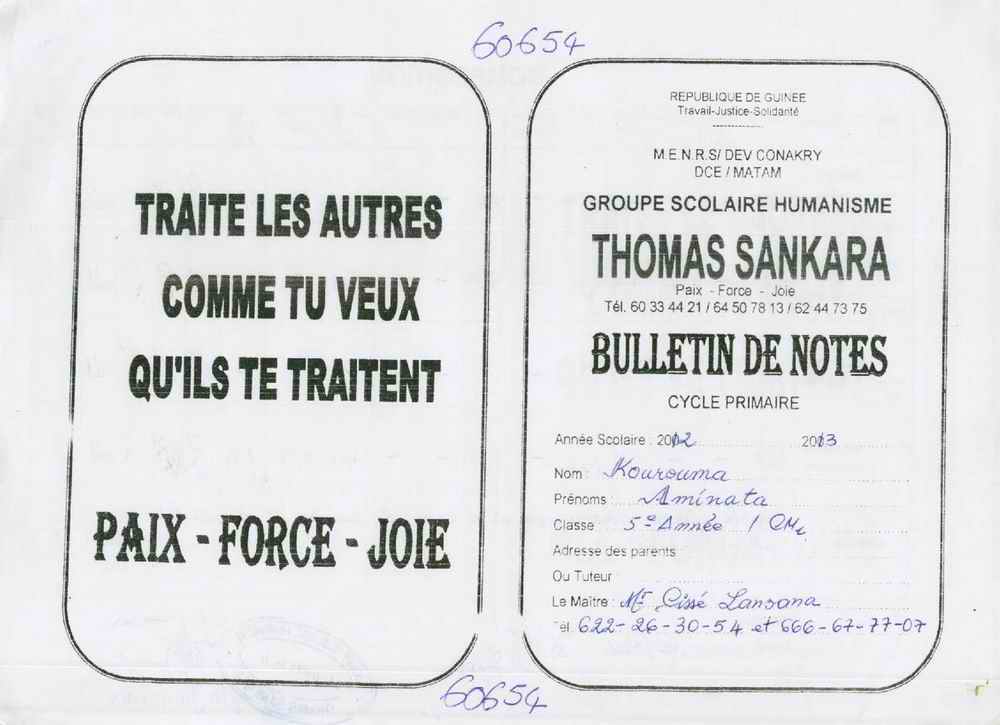 60654
TRAITE LES AUTRES
COMME TU VEUX
QU'ILS TE TRAITENT
PAIX - FORCE - JOIE
REPUBLIQUE DE GUINEE
Travail-Justice-Solidarité
M.E.N.R.S/ DEV CONAKRY
DCE / MATAM
GROUPE SCOLAIRE HUMANISME
THOMAS SANKARA
Paix - Force - Joie
Tél. 60 33 44 21 / 64 50 78 13 / 62 44 73 75
BULLETIN DE NOTES
CYCLE PRIMAIRE
Année Scolaire : 2012 2013
Nom : Kourouma
Prénoms : Aminata
Classe : 5e Année / CM1
Adresse des parents
Ou Tuteur
Le Maître : Mr Cissé Lansana
Tél. 622-26-30-54 et 666-67-77-07
60654